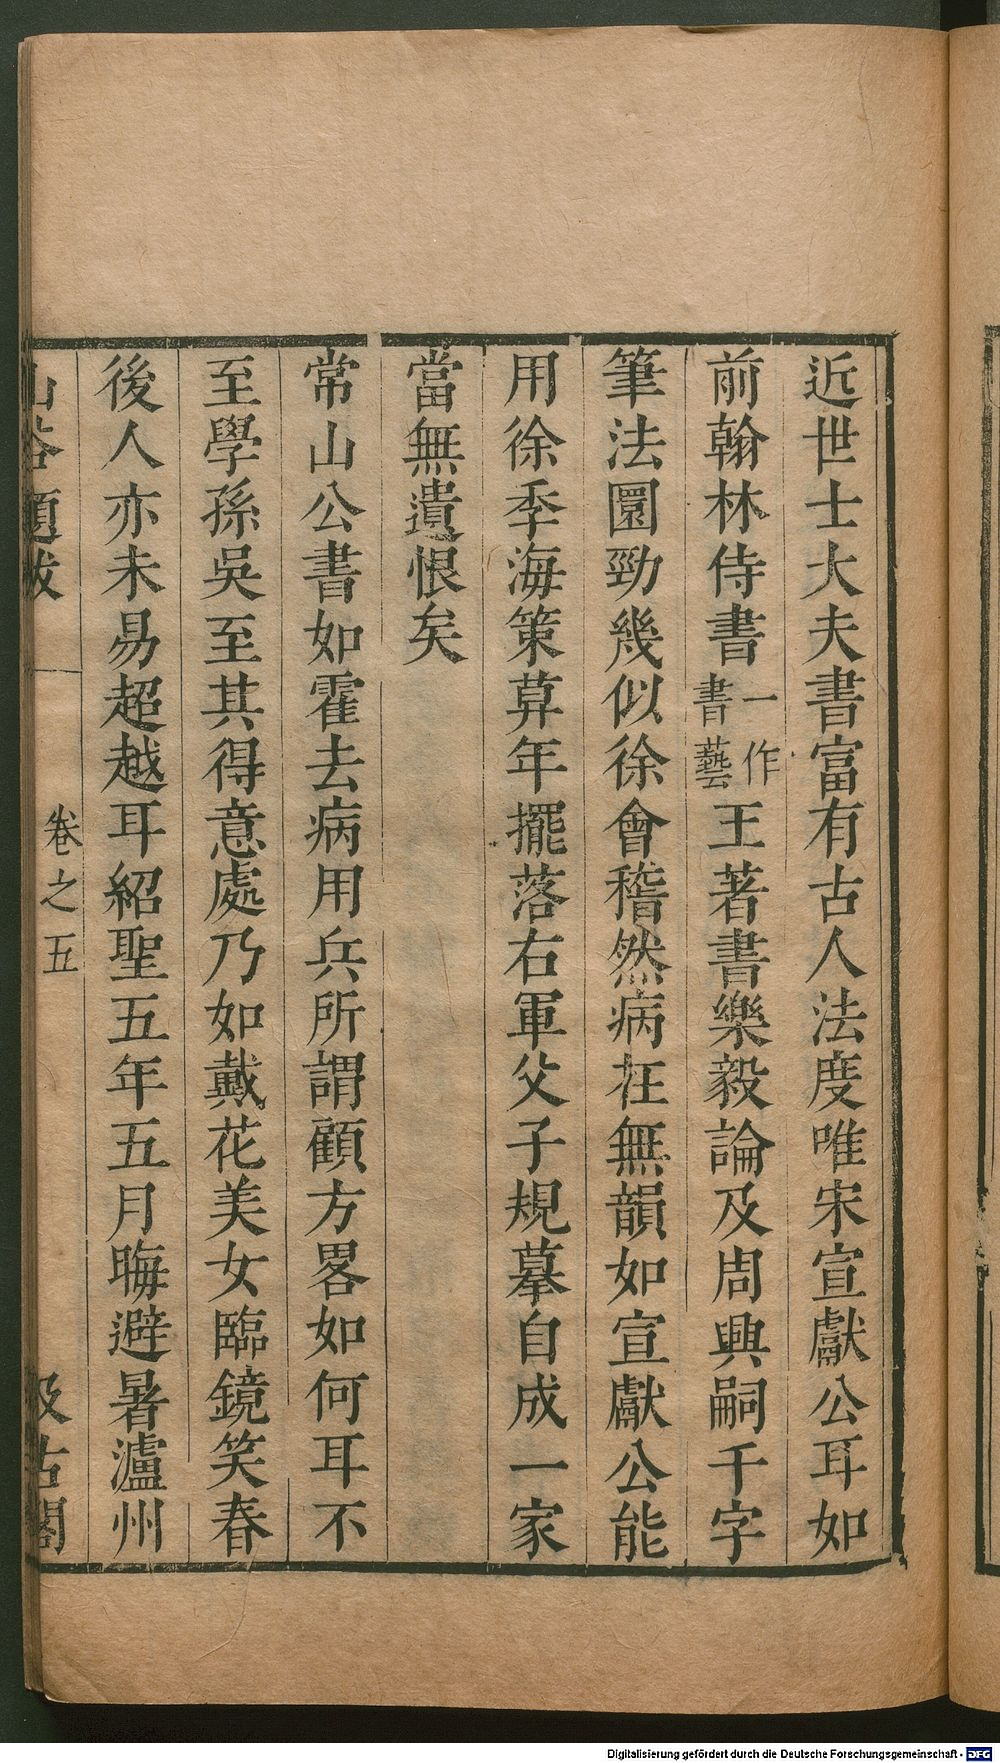 近世士大夫書富有古人法度唯宋宣獻公耳如
前翰林侍書一作書藝王著書樂毅論及周興嗣千字
筆法圓勁幾似徐會稽然病在無韻如宣獻公能
用徐季海策算年擺落右軍父子規摹自成一家
當無遺恨矣
常山公書如霍去病用兵所謂顧方畧如何耳不
至學孫吳至其得意處乃如戴花美女臨鏡笑春
後人亦未易超越耳紹聖五年五月晦避暑瀘州
山谷題跋
卷之五
汲古閣
Digitalisierung gefördert durch die Deutsche Forschungsgemeinschaft - DFG